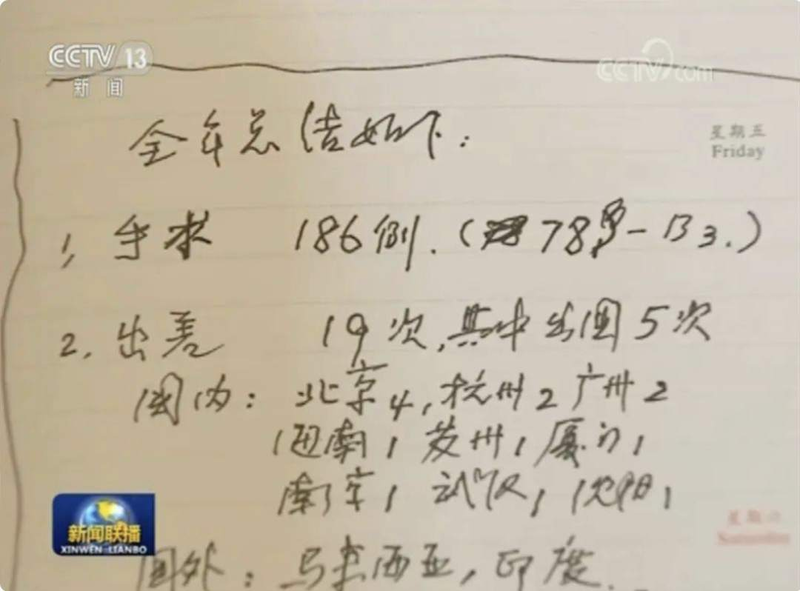 CCTV 13
新闻
CCTV.com
全年总结如下：
星期五
Friday
1, 手术 186例.(78
2. 出差 19次,其中出国5次
国内：北京4,杭州2 广州2
海南1 州1 厦门1
南京1 武汉1 沈阳1
新闻联播
XINWEN LIANBO
星期六
Saturday
国外：马来西亚,印度.